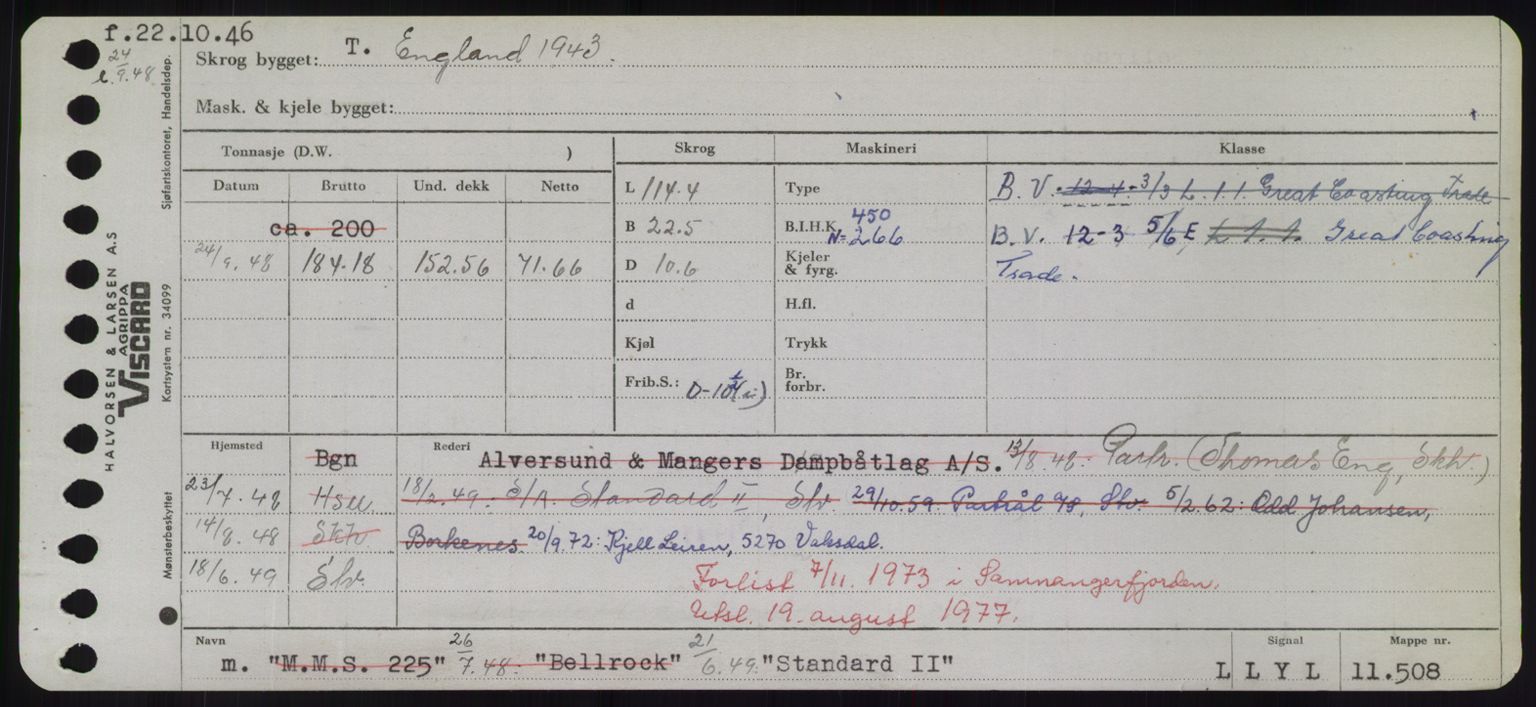 f.22.10.46
24/9.48
Skrog bygget: T. England 1943.
Mask. & kjele bygget:
Tonnasje (D.W. )
Skrog Maskineri Klasse
Datum Brutto Und. dekk Netto
L 114.4 Type B.V. 12-4. 3/3 L. 1. 1. Great Coasting Trade
ca. 200
B 22.5 B.I.H.K. 450 N=266 B.V. 12-3 5/6 E L 1. 1. Great Coasting
24/9.48 184.18 152.56 71.66
D 10.6 Kjeler & fyrg. Trade.
d H.fl.
Kjøl Trykk
Frib.S.: 0-10½(i) Br. forbr.
Hjemsted Bgn Rederi Alversund & Mangers Dampbåtlag A/S. 13/8.48. Partr. (Thomas Eng, Skv.)
23/7.48 Hsu 18/2.49. S/A. Standard II, Slv. 29/10.59. Partrål A/S, Slv. 5/2.62: Odd Johansen,
14/8.48 Skv Borkenes. 20/9.72: Kjell Leiren, 5270 Vaksdal.
18/6.49 Slv. Forlist 7/11. 1973 i Samnangerfjorden.
Utsl. 19. august 1977.
Navn Signal Mappe nr.
m. "M.M.S. 225" 26/7.48. "Bellrock" 21/6.49: "Standard II" L L Y L 11.508
Sjøfartskontoret, Handelsdep.
HALVORSEN & LARSEN A.S
AGRIPPA
VISCARD
Kortsystem nr. 34099
Mønsterbeskyttet